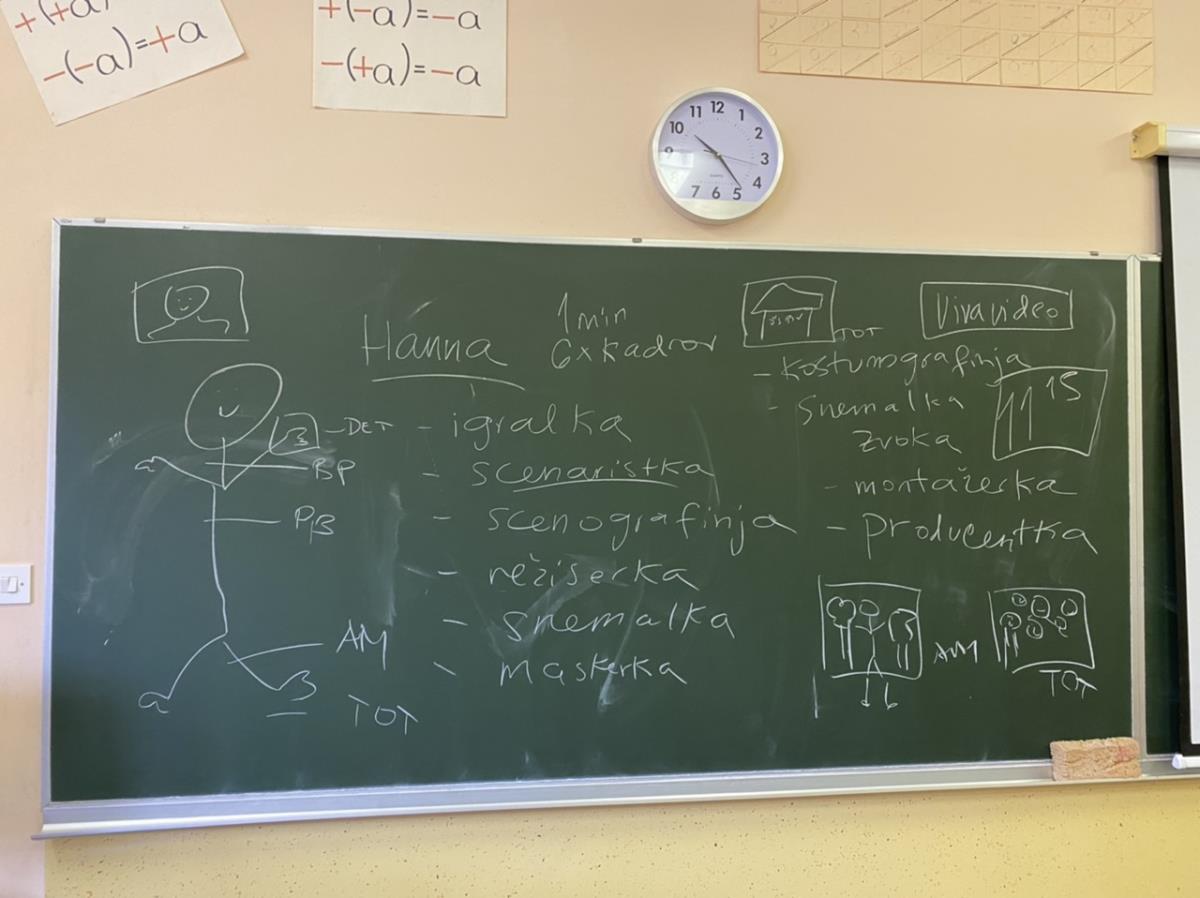 +(+a)
-(-a)=+a
+(-a)=-a
-(+a)=-a
11 12 1
10 2
9 3
8 4
7 6 5
Hanna
1 min
6x kadrov
TOT
Vivavideo
DET
BP
PB
AM
TOT
- igralka
- scenaristka
- scenografinja
- režiserka
- snemalka
- maskerka
- kostumografinja
- snemalka
zvoka
- montažerka
- producentka
11 15
AM
TOT